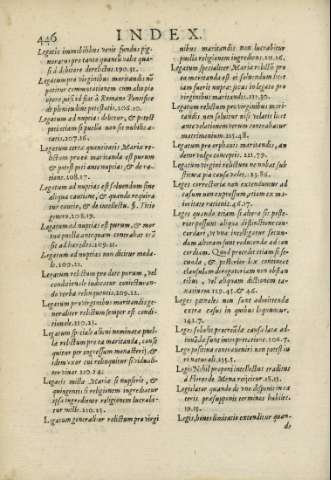 446 INDEX.
Legatis immobilibus venit fundus pig-
Legatum pro virginibus maritandis
petitur commutationem cum alio pia
opere possit fieri à Romano Pontifice
de plenitudine potestatis. 106.10.
Legatum ad nuptias debetur, & potest
peti etiam si puella non sit nubilis æ-
tatis. 107.16.
Legatum certa quantitatis Maria re-
lictum pro ea maritanda est purum
& potest peti ante nuptias, & de ra-
tione. 108.17.
Legatum ad nuptias est secundum sine
aliqua cautione, & quando requira
tur cautio, & de intellectu §. Titio
genero. 108.19.
Legatum ad nuptias est purum, & mor
tua puella ante quam contrahat
sit ad hæredes. 109.21.
Legatum ad nuptias non dicitur moda-
le. 109.22.
Legatum relictum pro dote purum, vel
conditionale iudicatur coniectum an-
do verba relinquentis. 109.22.
Legatum pro virginibus maritandis ge-
neraliter relictum semper est condi-
tionale. 110.23.
Legatum speciale alicui nominatæ puel-
la relictum pro ea maritanda, conse
quitur per ingressum monasterij, &
idem
vinct 110.24.
Legatis mille Maria se nupserit, &
quingentis si religionem ingrediatur
ipsa ingrediens religionem lucrabi-
tur mille. 110.25.
Legatum generaliter relictum pro virgi
nibus maritandis non lucrabitur
puella religionem ingrediens. 111.26.
Legatum specialiter Maria relictum pro
ea maritanda est ei soluendum licet
iam fuerit nupta; secus in legato pro
virginibus maritandis. 111.30.
Legatum relictum pro virginibus mari-
tandis non soluitur nisi velatis licet
ante velationem verum contrahatur
matrimonium. 115.48.
Legatum pro orphanis maritandis, an
detur vulgo conceptis. 121.79.
Legatum virgini relictum ne nubat sub
stinetur pia causa soluet. 123.86.
Leges correctoria non extenduntur ad
casum non expressum, etiam ex ma
ioritate rationis. 46.17.
Leges quando etiam si altera sit poste-
rior possunt aliqua distinctione con-
cordari, & vna intelligatur secun-
dum alteram sunt reducenda ad con
cordiam. Quod procedit etiam si se-
cunda, & posterior lex contineret
clausulam derogatoriam non obstan
tibus, vel aliquam dictionem ta-
xatiuam 119.45. & 46.
Leges pænales non sunt admittenda
extra casus in quibus loquuntur.
142.7.
Leges fauore
tiua sunt interpretationi. 106.7.
Lege positiua contraueniri non potest iu
ri naturali. 235.5.
Legis Nihil proponi intellectus traditus
à Florendo Mena reijcitur. 28.13.
Legislator quando de vno disponit in ce
teris præsupponit terminos habiles.
19.15.
Legis, bones limitatio extenditur quan-
do